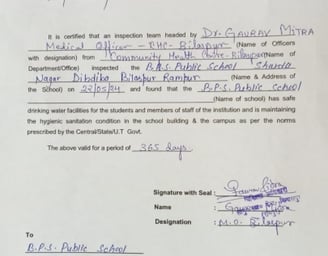 It is certified that an inspection team headed by Dr. GAURAV MITRA
Medical Officer - CHC - Bilaspur (Name of Officers
with designation) from Community Health Centre - Bilaspur (Name of
Department/Office) inspected the B.P.S. Public School
Nagar Dibdiba Bilaspur Rampur (Name & Address of
the School) on 22/05/24 and found that the B.P.S. Public School
(Name of school) has safe
drinking water facilities for the students and members of staff of the institution and is maintaining
the hygienic sanitation condition in the school building & the campus as per the norms
prescribed by the Central/State/U.T Govt.
The above valid for a period of 365 days.
Signature with Seal :
Name :
Designation : M.O. Bilaspur
To
B.P.S. Public School